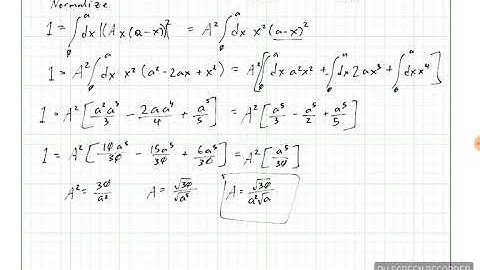 Normalize
1 = ∫₀ᵃ dx |(Ax(a-x)|² = A² ∫₀ᵃ dx x²(a-x)²
1 = A² ∫₀ᵃ dx x²(a² - 2ax + x²) = A² [∫₀ᵃ dx a²x² + ∫₀ᵃ dx 2ax³ + ∫₀ᵃ dx x⁴]
1 = A² [a²a³/3 - 2aa⁴/4 + a⁵/5] = A² [a⁵/3 - a⁵/2 + a⁵/5]
1 = A² [10a⁵/30 - 15a⁵/30 + 6a⁵/30] = A² [a⁵/30]
A² = 30/a⁵ A = √30/√a⁵ A = √30/a²√a